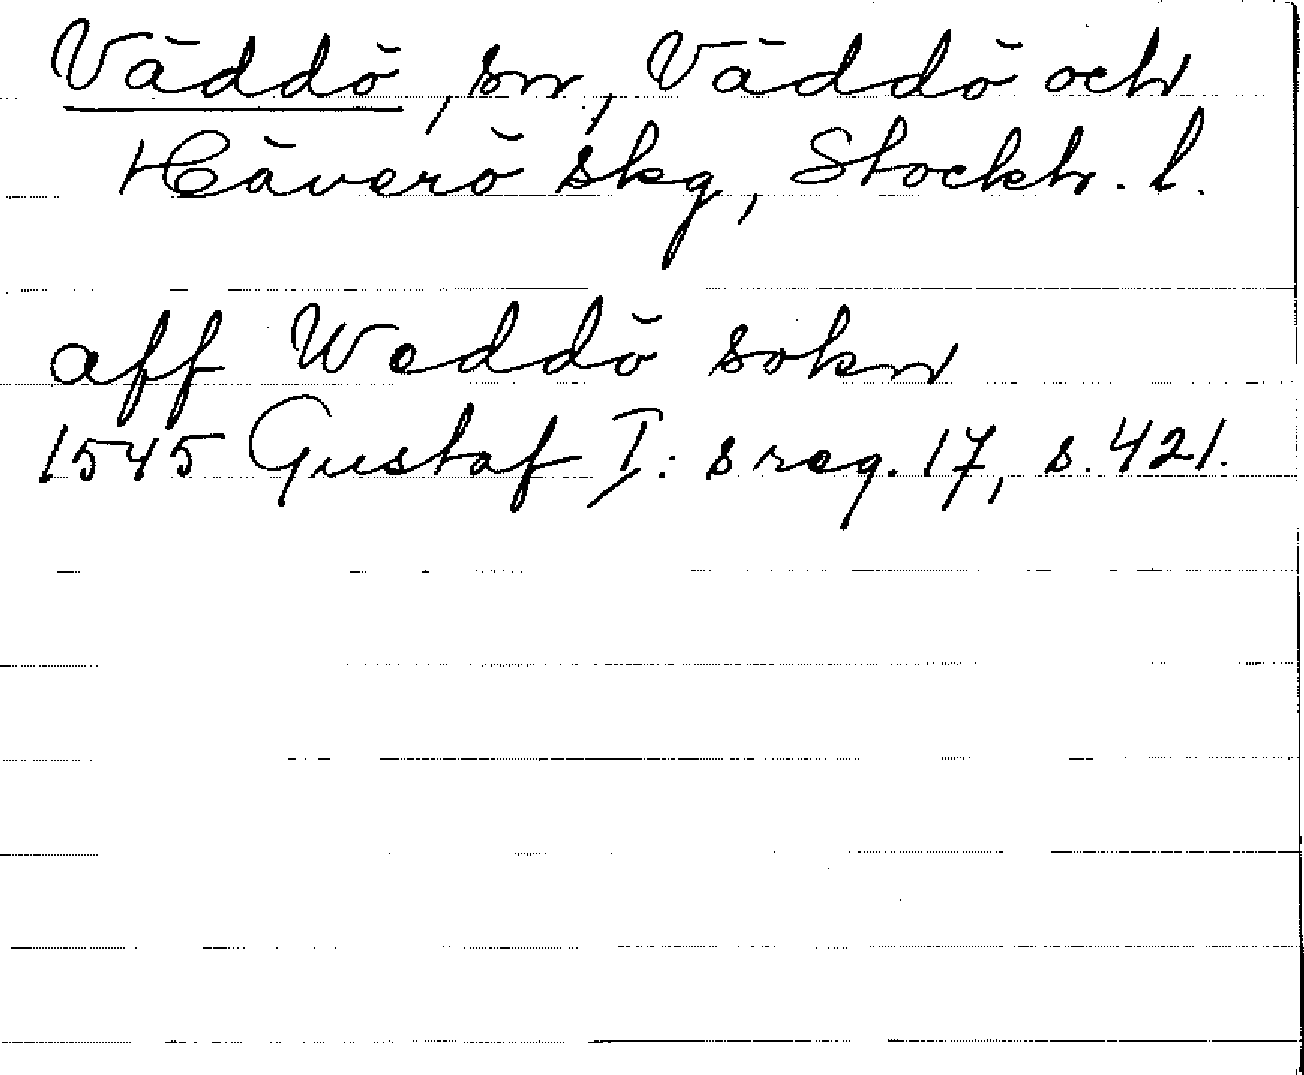 Väddö, sn, Väddö och
Häverö skg, Stockh. l.
aff Weddö sokn
1545 Gustaf I:s reg. 17, s. 421.